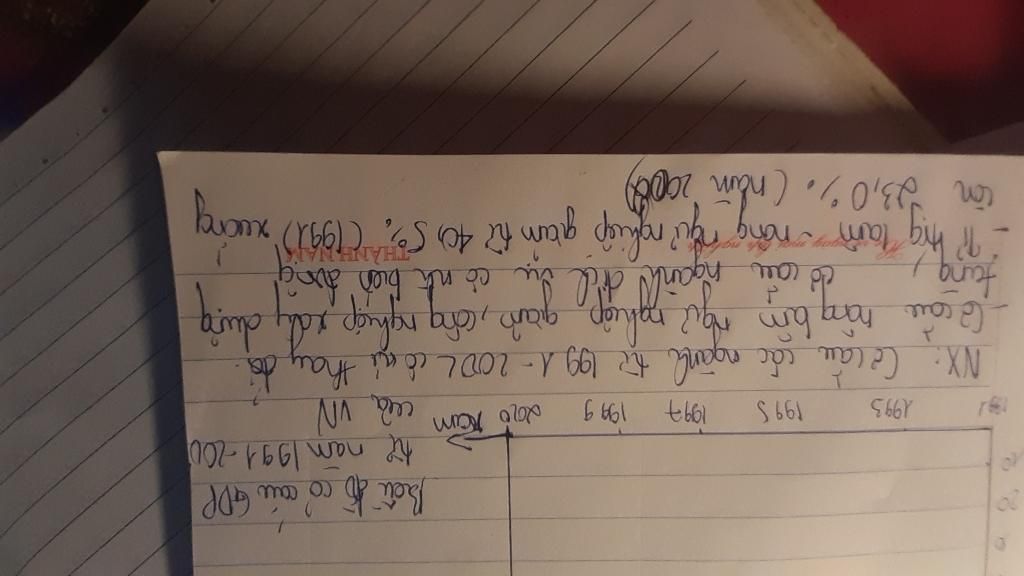 Biểu đồ cơ cấu GDP
20
từ năm 1991-200
10
1991 1993 1995 1997 1999 2020 năm của VN
NX: Cơ cấu các ngành từ 1991-2002 có sự thay đổi.
- Cơ cấu nông lâm ngư nghiệp giảm, công nghiệp xây dựng
tăng, cơ cấu ngành dịch vụ có biến động
THÀNH NAM
- Tỉ trọng lâm - nông ngư nghiệp giảm từ 40,5% (1991) xuống
còn 23,0%. (năm